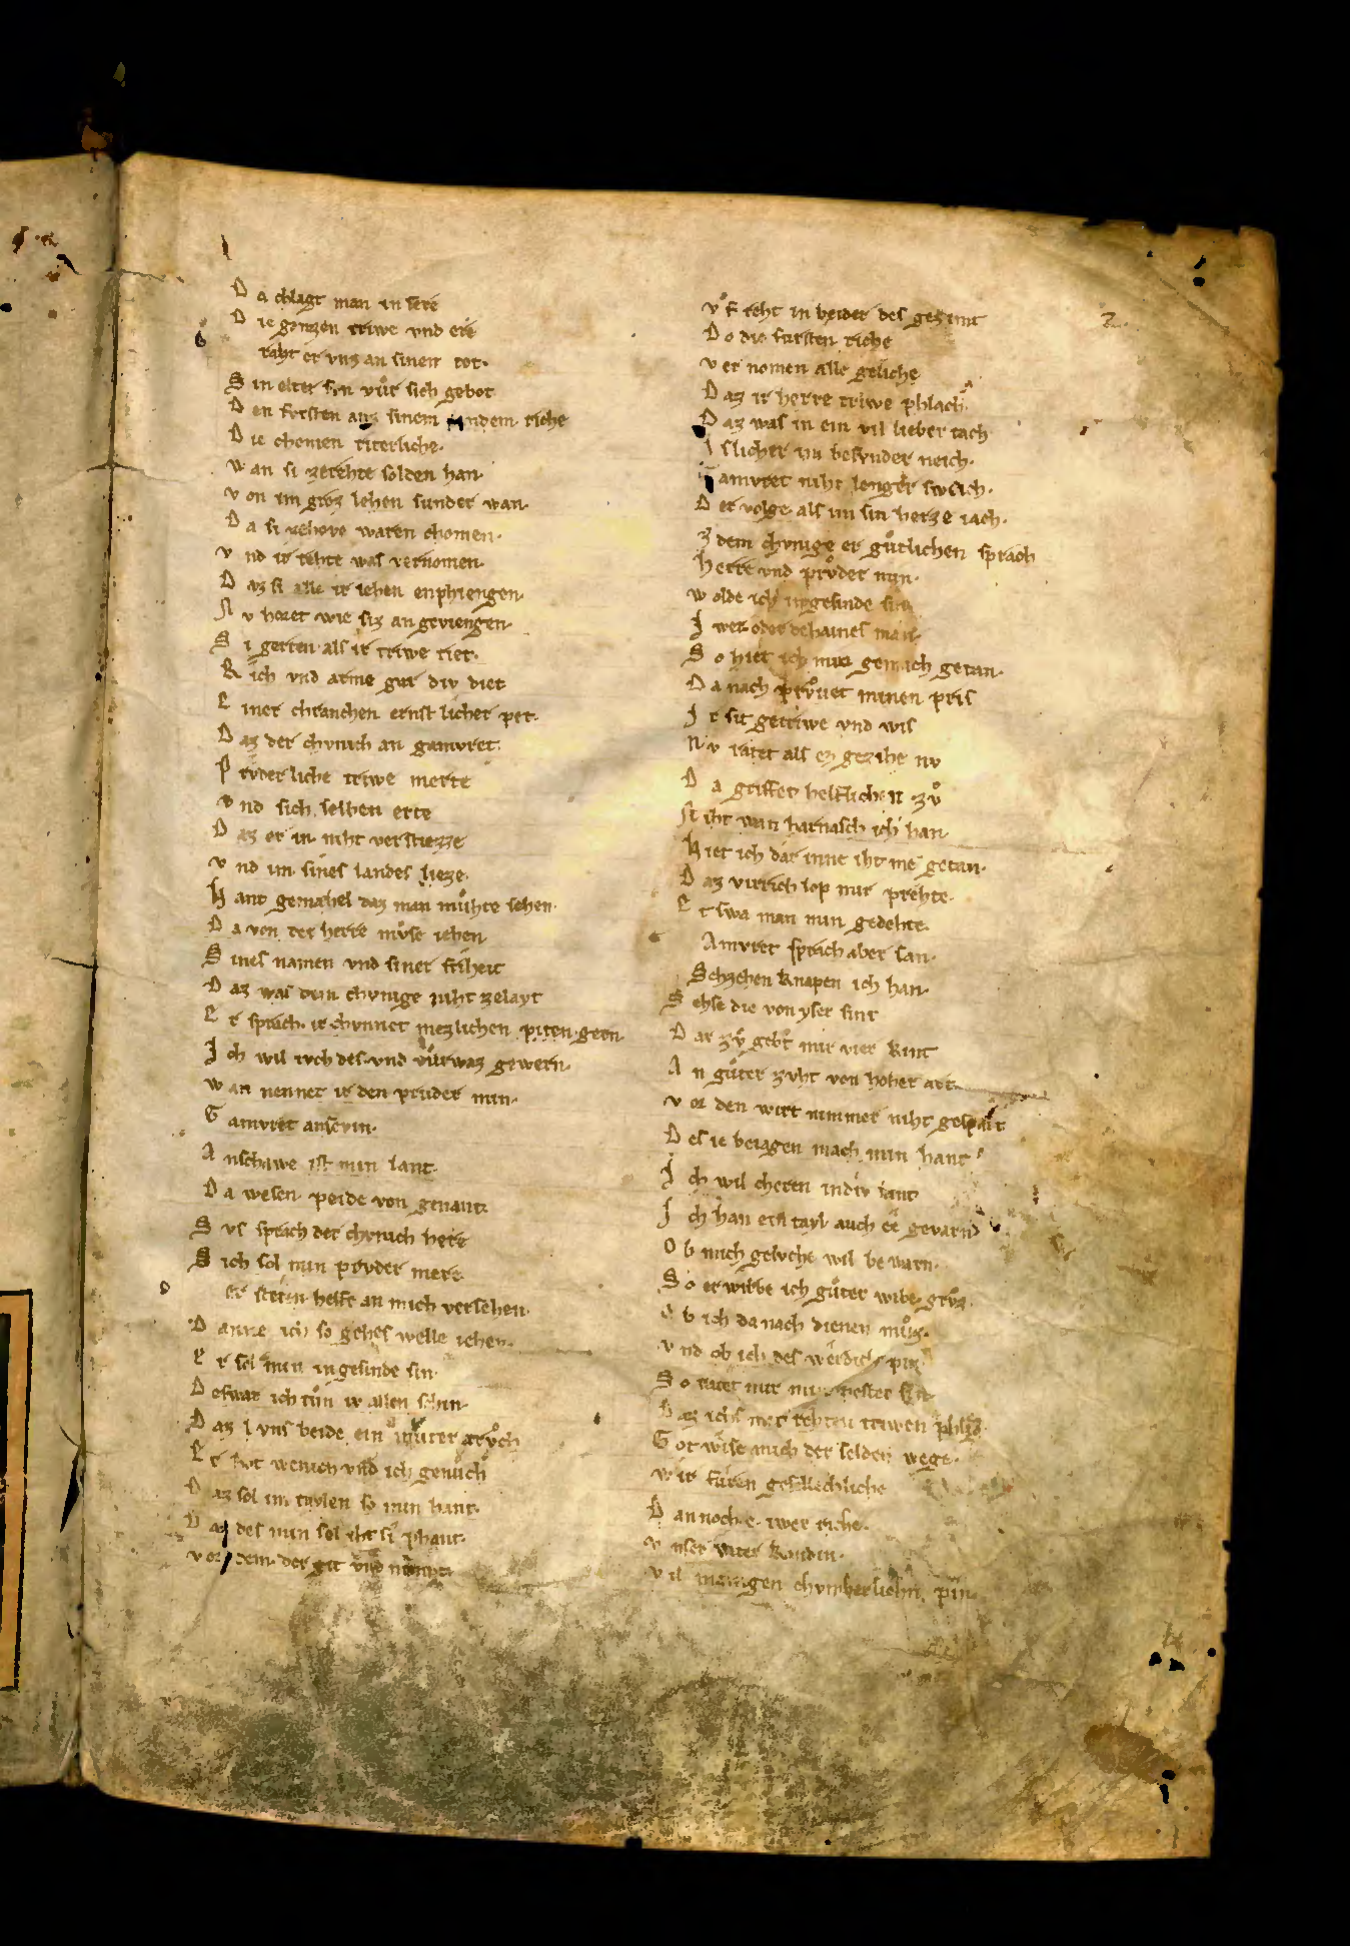 2
D a chlagt man in sere
D ie ganzen triwe vnd ere
raht er vnz an sinen tot·
S in elter svn vuͦr sich gebot
D en fvrsten auz sinem landem riche
D ie chomen riterliche·
w an si zerehte solden han·
v on im groz lehen sunder wan·
D a si zehove waren chomen·
v nd ir rehte was vernomen·
D az si alle ir lehen enphiengen·
N v horet wie siz an geviengen·
S i gerten als ir triwe riet·
R ich vnd arme gar div diet
E iner chranchen ernst licher pet·
D az der chvnich an gamvret·
P rvderliche triwe merte
v nd sich selben erte
D az er in niht verstiezze
v nd im sines landes lieze·
H ant gemahel daz man muͦhte sehen·
D a von der herre muͦse iehen
S ines namen vnd siner friheit
D az was dem chvnige niht zelayt
E r sprach· ir chvnnet mezlichen piten·gern·
I ch wil ivch des·vnd vuͦrwaz gewern·
w an nennet ir den pruder min·
G amvret anscevin·
A nschawe ist min lant·
D a wesen peide von genant·
S vs sprach der chvnich here
S ich sol min prvder mere
der steten helfe an mich versehen·
D anne ich so gehes welle iehen·
E r sol min ingesinde sin·
D eswar ich tuͦn iv allen schin·
D az vns beide ein muͦter truͦch
E r hat wenich vnd ich genuͦch
D az sol im taylen so min hant·
D az des min sel iht si phant·
v or dem· der git vnd nimt·
v f reht in beider des gezimt
D o die fursten riche
v er nomen alle geliche
D az ir herre triwe phlach·
D az was in ein vil lieber tach
I slicher im besvnder neich·
G amvret niht lenger sweich·
D er volge als im sin herze iach·
z dem chvnige er guͦtlichen sprach
H erre vnd pruͦder min·
w olde ich ingesinde sin
I wer oder dehaines man·
S o hiet ich min gemach getan·
D a nach pruͦuet minen pris
I r sit getriwe vnd wis
N v ratet als ez gezihe nv
D a griffet helflichen zuͦ
N iht wan harnasch ich han·
H iet ich dar inne iht me getan·
D az virrich lop mir prehte·
E t swa man min gedehte·
Amvret sprach aber san·
Sehzehen knapen ich han·
S ehse die von yser sint
D ar zuͦ gebt mir vier kint
A n guͦter zvht von hoher art·
v or den wirt nimmer niht gespart
D es ie beiagen mach min hant
I ch wil cheren indiv lant
I ch han ein tayl auch ee gevarn
O b mich gelvche wil bewarn·
S o erwirbe ich guͦter wibe gruͦz·
O b ich da nach dienen muͦz·
v nd ob ich des werdich pin
S o ratet mir min bester sin
D az ichs mit rehten triwen phlege·
G ot wise mich der selden wege·
w ir furen geselliechliche
D annoch·e· iwer riche·
v nser vater Kandin·
v il manigen chvmberlichn pin·